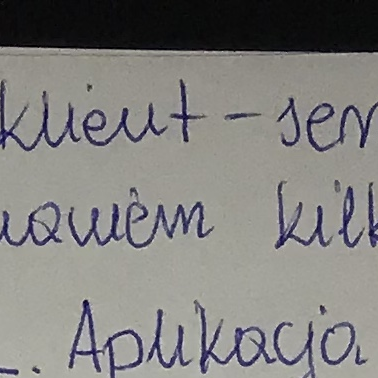 klient - ser
kilk
. Aplikacja